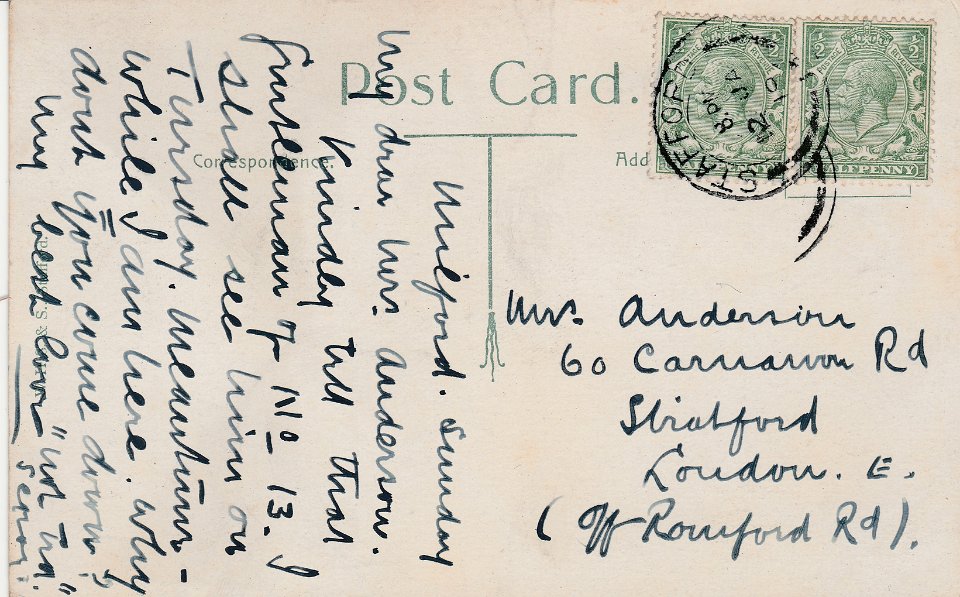 Post Card.
Correspondence.
Add
STAFFORD
8 PM
12 JA
19
HALFPENNY
Milford. Sunday
My dear Mrs. Anderson.
Kindly tell that
Gentleman of No 13. I
shall see him on
Tursday. Meantime-
while I am here. why
dont you come down?
My best love "not tra"
Mrs. Anderson
60 Carnarvon Rd
Stratford
London. E.
(Off Romford Rd).